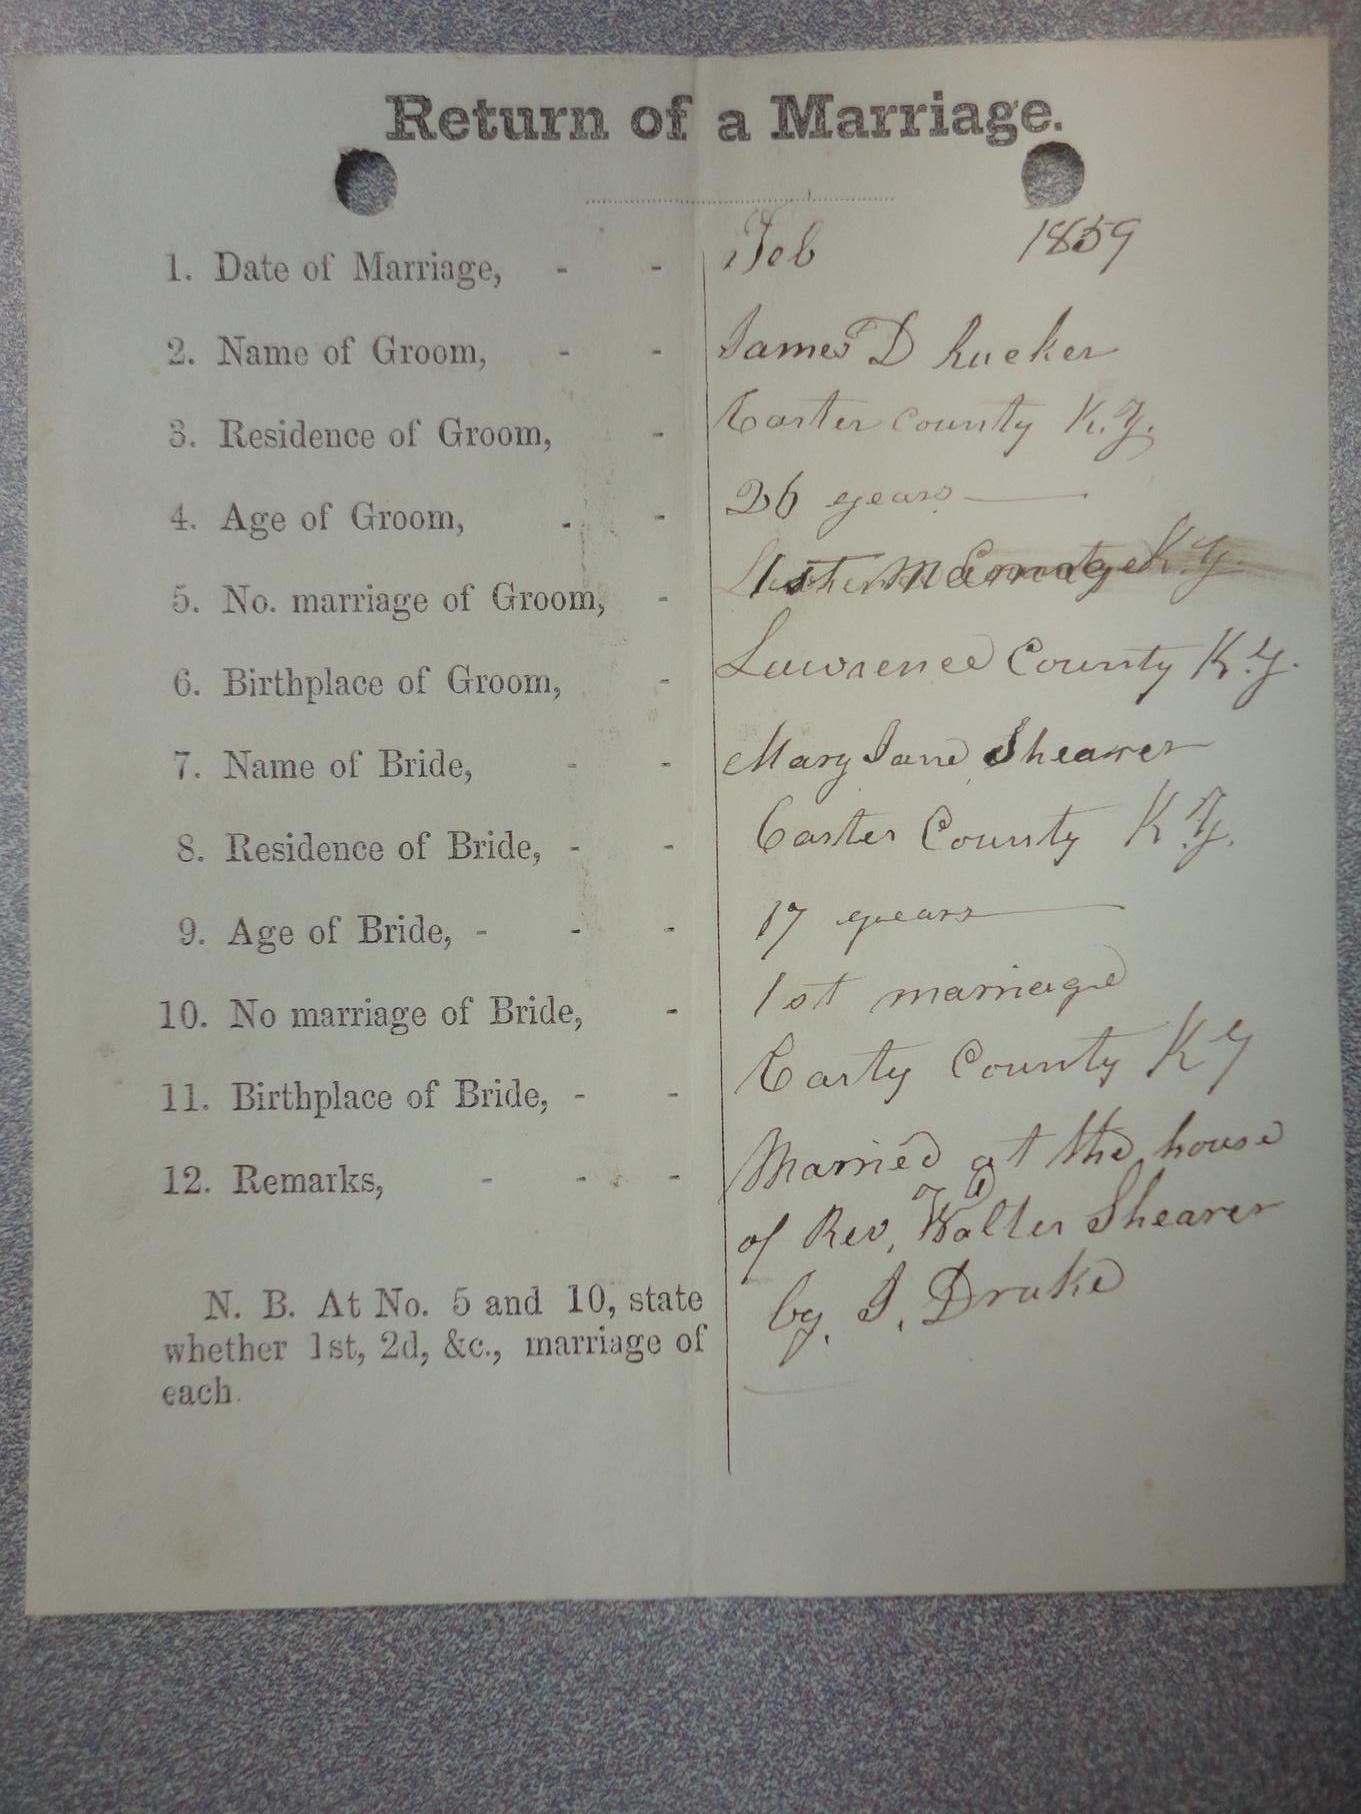 Return of a Marriage.
1. Date of Marriage, - - Feb 1859
2. Name of Groom, - - James D Rucker
3. Residence of Groom, - Carter County K.Y.
4. Age of Groom, - - 26 years
5. No. marriage of Groom, - 1st Marriage
6. Birthplace of Groom, - Lawrence County K.Y.
7. Name of Bride, - - Mary Jane Shearer
8. Residence of Bride, - - Carter County K.Y.
9. Age of Bride, - - - 17 years
10. No marriage of Bride, - 1st marriage
11. Birthplace of Bride, - - Carty County KY
12. Remarks, - - - Married at the house
of Rev, Walter Shearer
by, J, Drake
N. B. At No. 5 and 10, state
whether 1st, 2d, &c., marriage of
each.